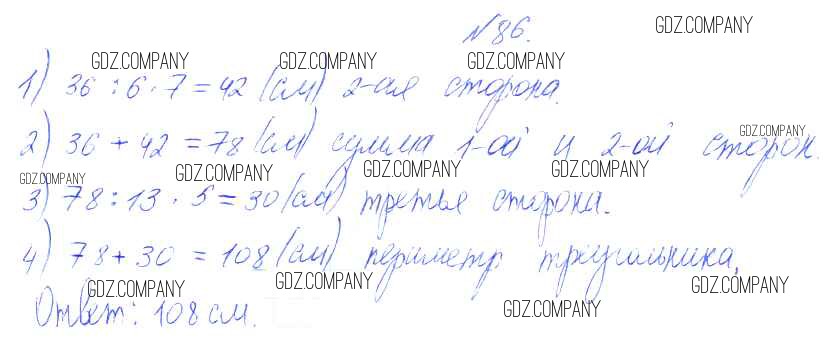 №86.
GDZ.COMPANY
GDZ.COMPANY GDZ.COMPANY GDZ.COMPANY
1) 36 : 6 · 7 = 42 (см) 2-ая сторона.
GDZ.COMPANY
2) 36 + 42 = 78 (см) сумма 1-ой и 2-ой сторон.
GDZ.COMPANY GDZ.COMPANY GDZ.COMPANY GDZ.COMPANY
3) 78 : 13 · 5 = 30 (см) третья сторона.
4) 78 + 30 = 108 (см) периметр треугольника.
GDZ.COMPANY GDZ.COMPANY GDZ.COMPANY
Ответ: 108 см.
GDZ.COMPANY